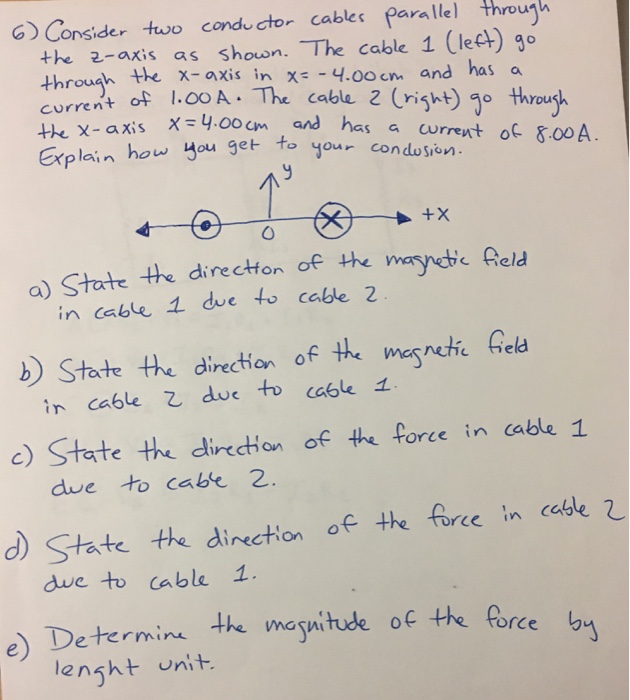 6) Consider two conductor cables parallel through
the z-axis as shown. The cable 1 (left) go
through the x-axis in x= -4.00cm and has a
current of 1.00A. The cable 2 (right) go through
the x-axis x=4.00cm and has a current of 8.00A.
Explain how you get to your conclusion.
y
+x
0
a) State the direction of the magnetic field
in cable 1 due to cable 2.
b) State the direction of the magnetic field
in cable 2 due to cable 1.
c) State the direction of the force in cable 1
due to cable 2.
d) State the direction of the force in cable 2
due to cable 1.
e) Determine the magnitude of the force by
lenght unit.